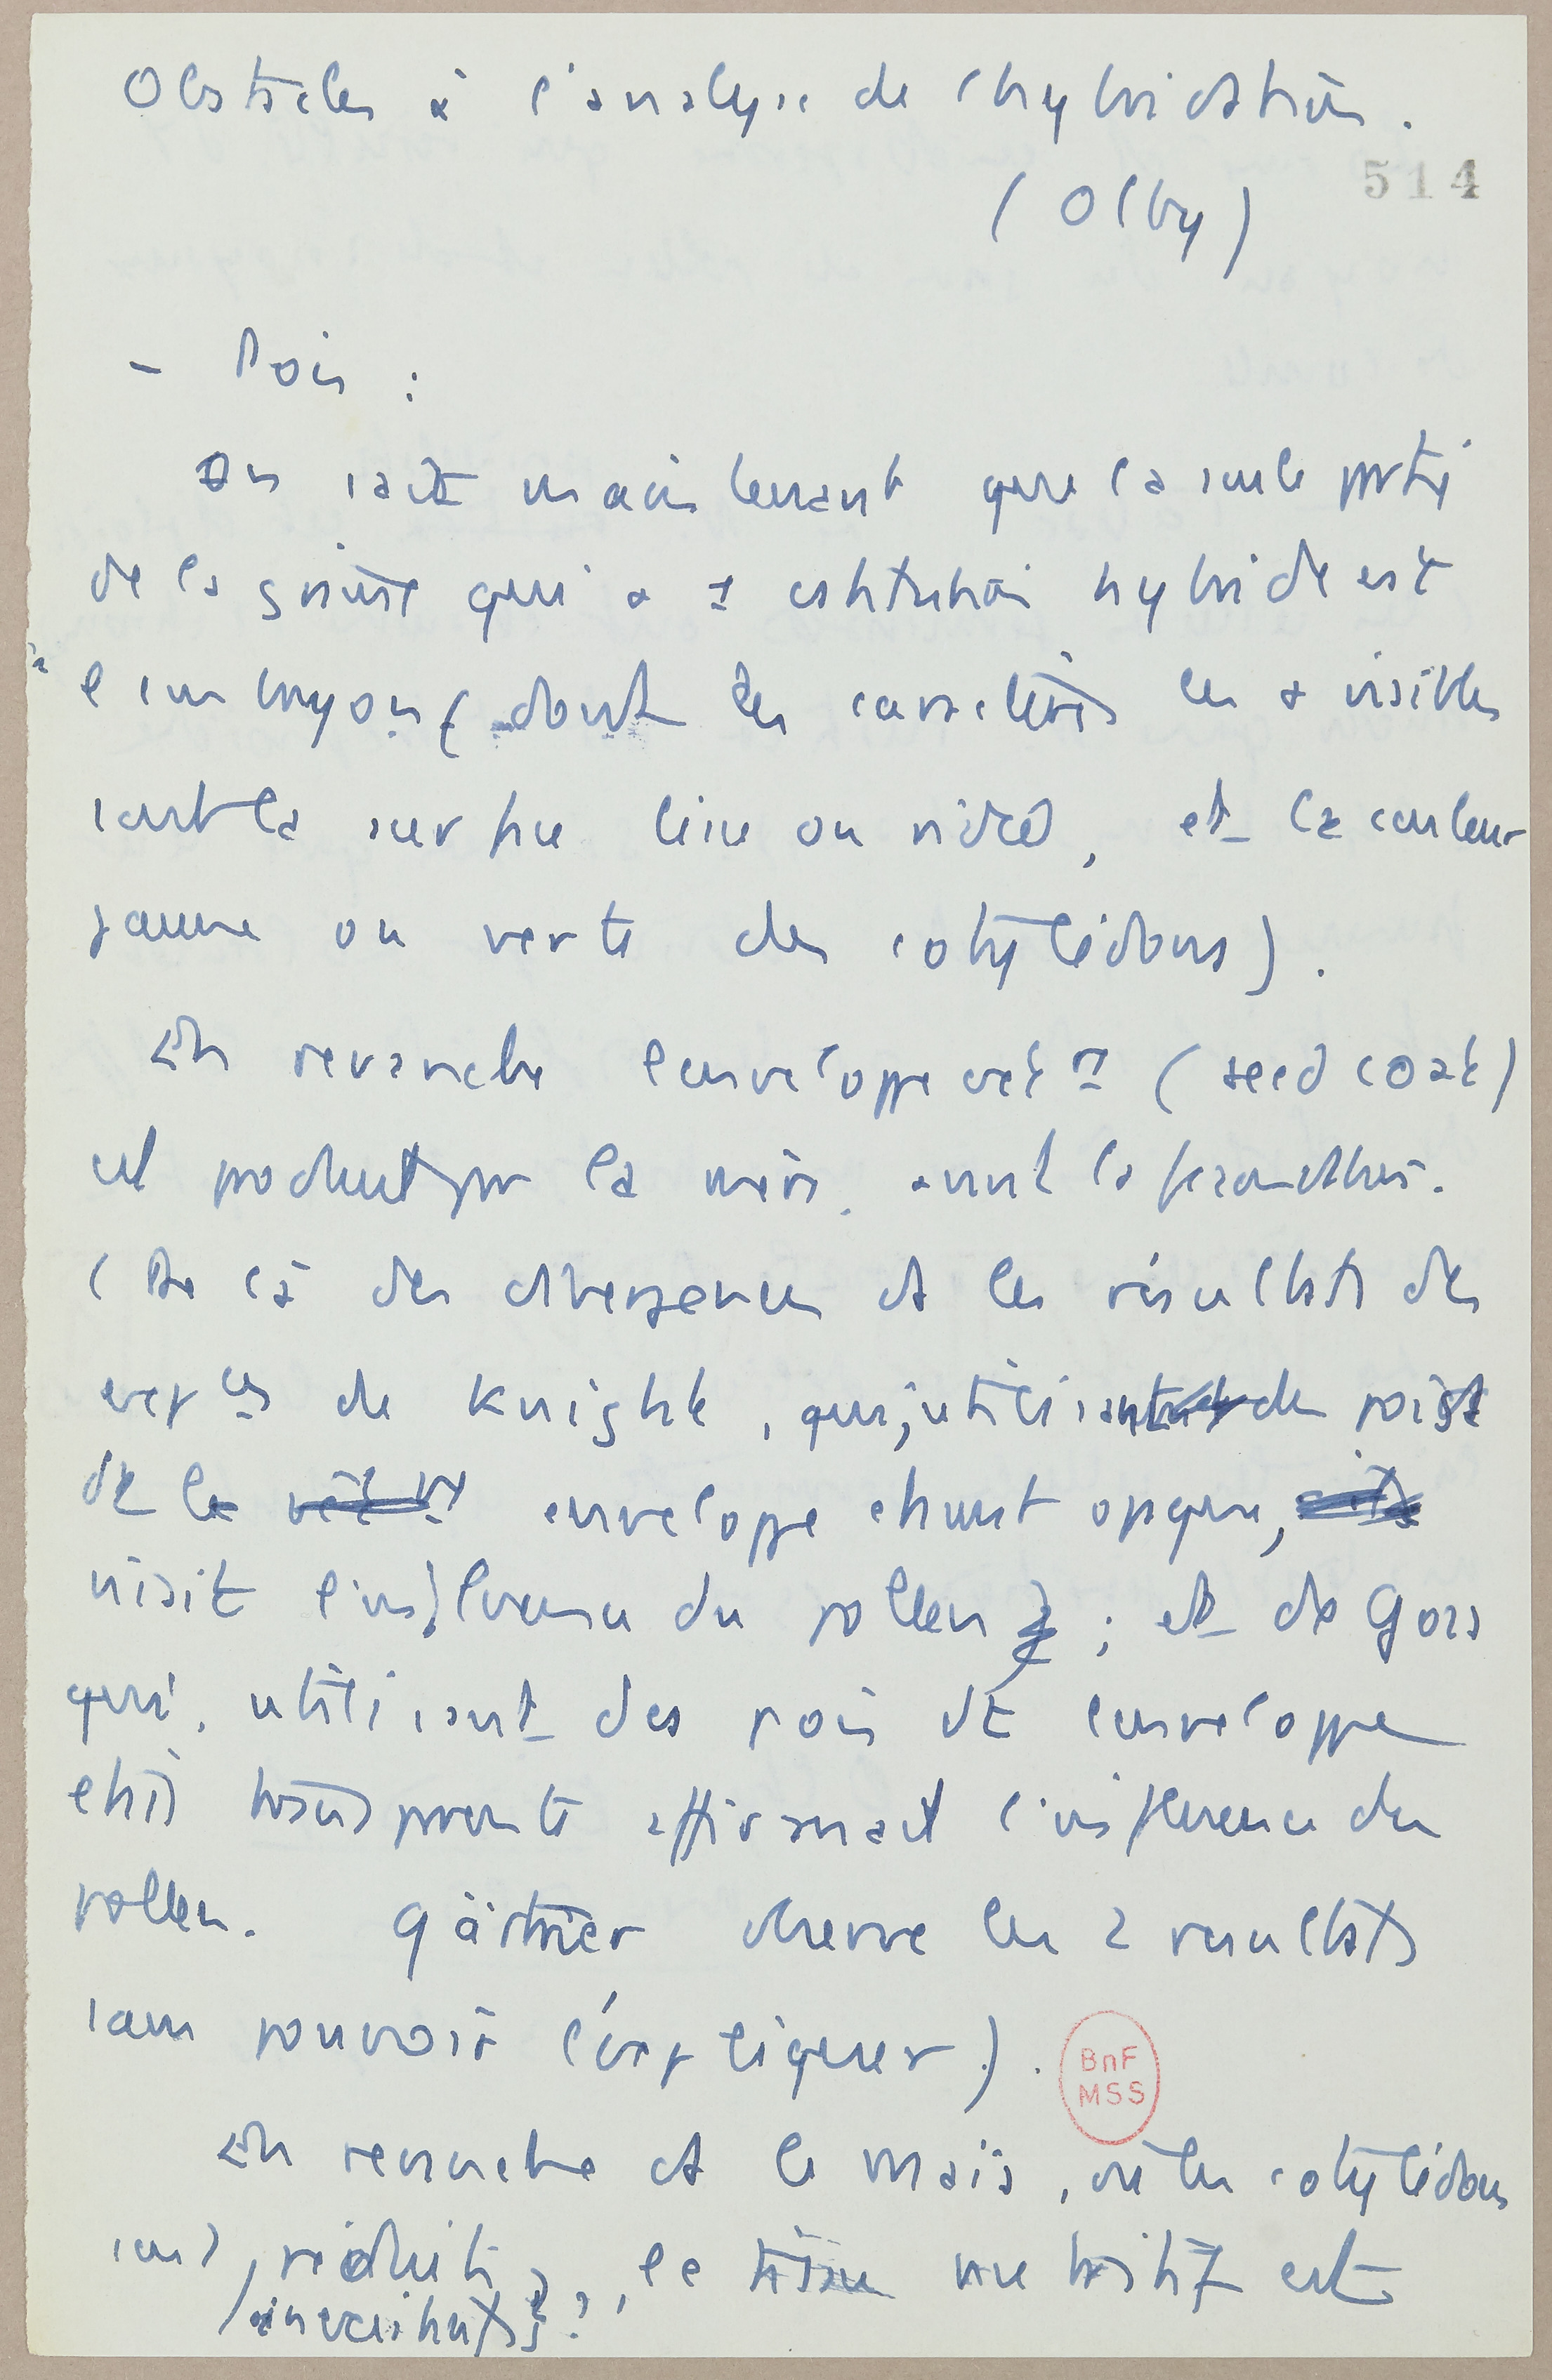 Obstacles à l'analyse de l'hybridation.
514
(Olby)
- Pois :
On sait maintenant que la seule partie
de la graine qui a 1 constitution hybride est
l'embryon (dont les caractères les + visibles
sont la surface lisse ou ridée, et la couleur
jaune ou verte des cotylédons).
En revanche l'enveloppe (seed coat)
est produit par la mère, avant la fécondation.
(De là des divergences ds les résultats des
exp ces de Knight, qui, utilisant des pois
dt l' enveloppe etant opaque,
niait l'influence du pollen ; et de Goss
qui, utilisant des pois dt l'enveloppe
etait transparente affirmait l'influence du
pollen. Gärtner observe les 2 resultats
sans pouvoir l'expliquer).
BnF
MSS
En revanche ds le maïs, où les cotylédons
sont réduits, le tissu nutritif est